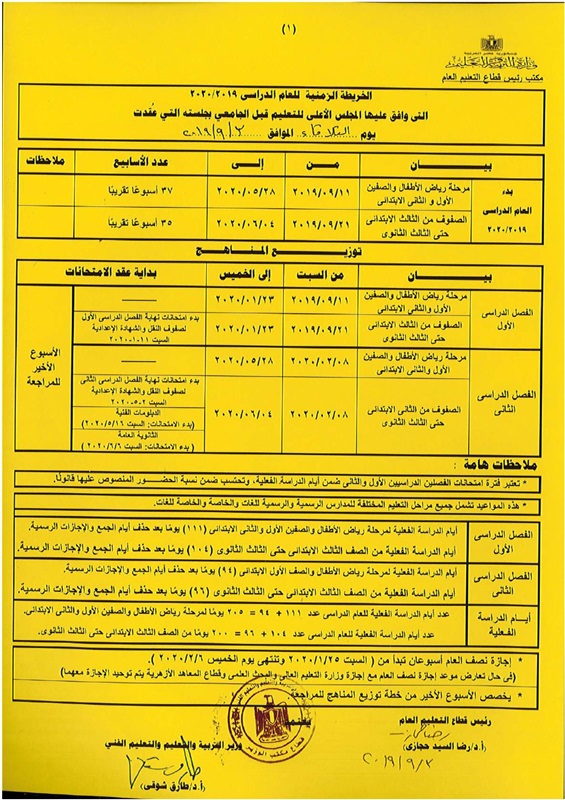 (١)
جمهورية مصر العربية
وزارة التربية والتعليم
مكتب رئيس قطاع التعليم العام
الخريطة الزمنية للعام الدراسى ٢٠٢٠/٢٠١٩
التى وافق عليها المجلس الأعلى للتعليم قبل الجامعي بجلسته التي عقدت
يوم الثلاثاء الموافق ٢٠١٩/٩/٣
بدء العام الدراسى ٢٠٢٠/٢٠١٩
بيـــان مـــن إلـــى عدد الأسابيع ملاحظات
مرحلة رياض الأطفال والصفين الأول و الثانى الابتدائى ٢٠١٩/٠٩/١١ ٢٠٢٠/٠٥/٢٨ ٣٧ أسبوعًا تقريبًا
الصفوف من الثالث الابتدائى حتى الثالث الثانوى ٢٠١٩/٠٩/٢١ ٢٠٢٠/٠٦/٠٤ ٣٥ أسبوعًا تقريبًا
توزيـــع المنـــاهج
بيـــان من السبت إلى الخميس بداية عقد الامتحانات
الفصل الدراسى الأول
مرحلة رياض الأطفال والصفين الأول والثانى الابتدائى ٢٠١٩/٠٩/١١ ٢٠٢٠/٠١/٢٣
الصفوف من الثالث الابتدائى حتى الثالث الثانوى ٢٠١٩/٠٩/٢١ ٢٠٢٠/٠١/٢٣
بدء امتحانات نهاية الفصل الدراسى الأول
لصفوف النقل والشهادة الإعدادية
السبت ١١-١-٢٠٢٠
الأسبوع الأخير للمراجعة
الفصل الدراسى الثانى
مرحلة رياض الأطفال والصفين الأول والثانى الابتدائى ٢٠٢٠/٠٢/٠٨ ٢٠٢٠/٠٥/٢٨
الصفوف من الثالث الابتدائى حتى الثالث الثانوى ٢٠٢٠/٠٢/٠٨ ٢٠٢٠/٠٦/٠٤
بدء امتحانات نهاية الفصل الدراسى الثانى
لصفوف النقل والشهادة الإعدادية
السبت ٢-٥-٢٠٢٠
الدبلومات الفنية
(بدء الامتحانات: السبت ٢٠٢٠/٥/١٦)
الثانوية العامة
(بدء الامتحانات: السبت ٢٠٢٠/٦/٦)
ملاحظات هامة :
* تعتبر فترة امتحانات الفصلين الدراسيين الأول والثانى ضمن أيام الدراسة الفعلية، وتحتسب ضمن نسبة الحضـــور المنصوص عليها قانونًا.
* هذه المواعيد تشمل جميع مراحل التعليم المختلفة للمدارس الرسمية والرسمية للغات والخاصة والخاصة للغات.
الفصل الدراسى الأول
أيام الدراسة الفعلية لمرحلة رياض الأطفال والصفين الأول والثانى الابتدائى (١١١) يومًا بعد حذف أيام الجمع والإجازات الرسمية.
أيام الدراسة الفعلية من الصف الثالث الابتدائى حتى الثالث الثانوى (١٠٤) يومًا بعد حذف أيام الجمع والإجازات الرسمية.
الفصل الدراسى الثانى
أيام الدراسة الفعلية لمرحلة رياض الأطفال والصف الأول الابتدائى (٩٤) يومًا بعد حذف أيام الجمع والإجازات الرسمية.
أيام الدراسة الفعلية من الصف الثالث الابتدائى حتى الثالث الثانوى (٩٦) يومًا بعد حذف أيام الجمع والإجازات الرسمية.
أيـــام الدراسة الفعلية
عدد أيام الدراسة الفعلية للعام الدراسى عدد ١١١ + ٩٤ = ٢٠٥ يومًا لمرحلة رياض الأطفال والصفين الأول والثانى الابتدائى.
عدد أيام الدراسة الفعلية للعام الدراسى عدد ١٠٤ + ٩٦ = ٢٠٠ يومًا من الصف الثالث الابتدائى حتى الثالث الثانوى.
* إجازة نصف العام أسبوعان تبدأ من ( السبت ٢٠٢٠/١/٢٥ وتنتهى يوم الخميس ٢٠٢٠/٢/٦ ).
(فى حال تعارض موعد إجازة نصف العام مع إجازة وزارة التعليم العالى والبحث العلمى وقطاع المعاهد الأزهرية يتم توحيد الإجازة معهما)
* يخصص الأسبوع الأخير من خطة توزيع المناهج للمراجعة.
رئيس قطاع التعليم العام
(أ.د/رضا السيد حجازى)
٢٠١٩/٩/٣
يعتمد
وزير التربية والتعليم والتعليم الفني
(أ.د/طارق شوقى)
قطاع مكتب الوزير